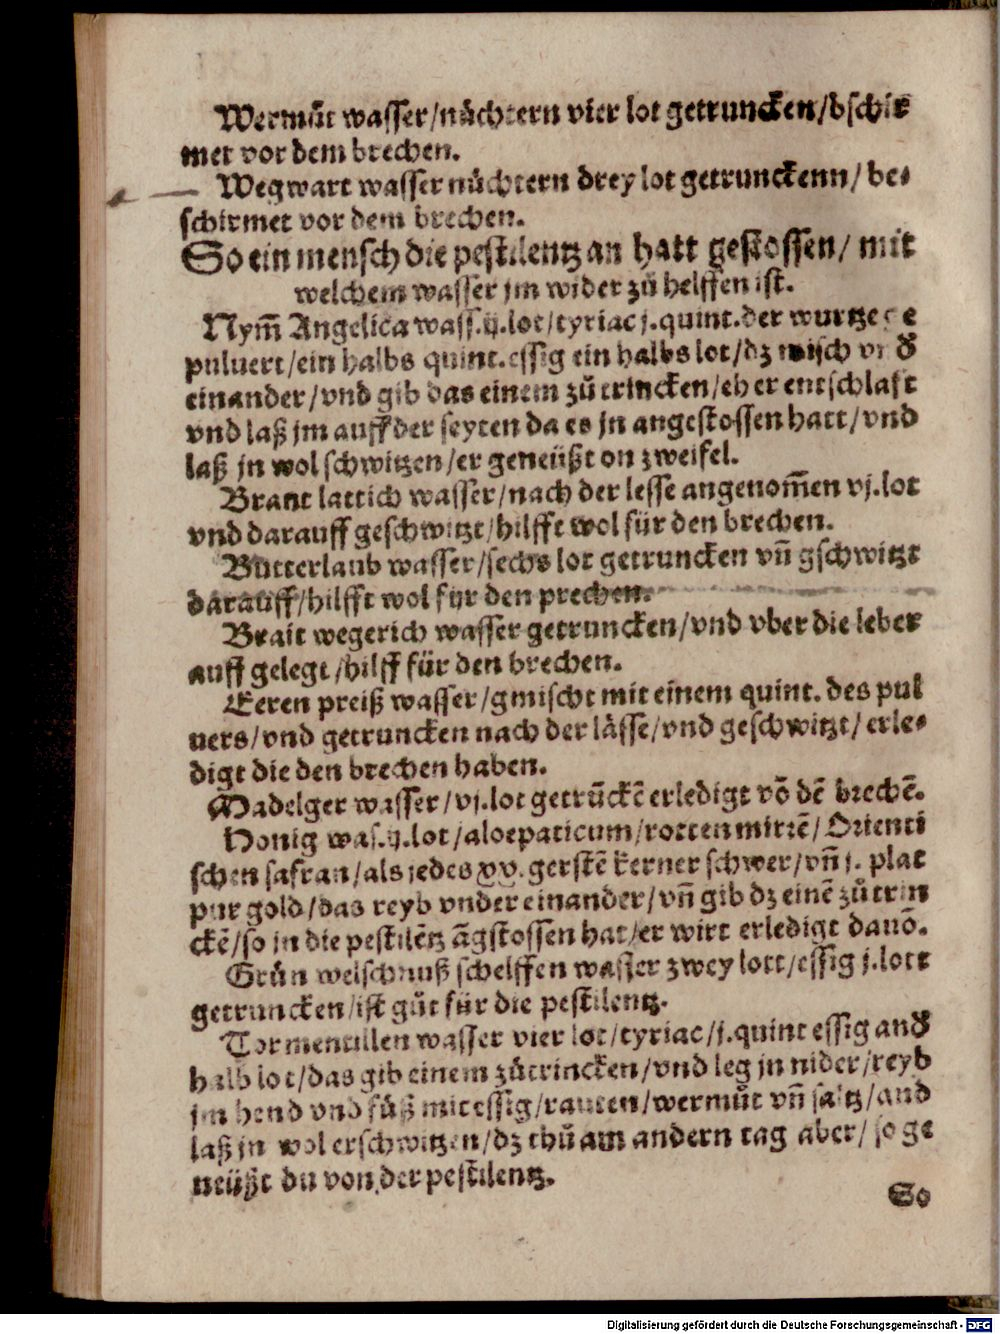 Wermůt wasser/nůchtern vier lot getruncken/bschir
met vor dem brechen.
Wegwart wasser nůchtern drey lot getrunckenn/ be-
schirmet vor dem brechen.
So ein mensch die pestilentz an hatt gestossen/ mit
welchem wasser jm wider zů helffen ist.
Nym̃ Angelica wass.ij.lot/tyriac j.quint.der wurtze ge
puluert/ein halbs quint.essig ein halbs lot/dz misch vnd
einander/vnd gib das einem zů trincken/eh er entschlaft
vnd laß jm auff der seyten da es jn angestossen hatt/vnd
laß jn wol schwitzen/er geneüßt on zweifel.
Brant lattich wasser/nach der lesse angenom̃en vj.lot
vnd darauff geschwitzt/hilfft wol für den brechen.
Butterlaub wasser/sechs lot getruncken vn̄ gschwitzt
darauff/hilfft wol für den prechen.
Brait wegerich wasser getruncken/vnd vber die leber
auff gelegt/hilff für den brechen.
Eeren preiß wasser/gmischt mit einem quint. des pul
uers/vnd getruncken nach der lässe/vnd geschwitzt/ erle-
digt die den brechen haben.
Madelger wasser/vj.lot getrūckē erledigt vō dē brechē.
Honig was.ij.lot/aloepaticum/rotten mirrē/ Orienti
schen safran/als jedes xv. gerstē kerner schwer/vn̄ j. plat
pur gold/das reyb vnder einander/vn̄ gib dz einē zů trin
ckē/so jn die pestilētz āgstossen hat/er wirt erledigt dauō.
Grůn welschnuß schelffen wasser zwey lott/essig j.lott
getruncken/ist gůt für die pestilentz.
Tormentillen wasser vier lot/tyriac/j.quint essig and
halb lot/das gib einem zů trincken/vnd leg jn nider/reyb
jm hend vnd fůß mit essig/rauten/wermůt vn̄ saltz/and
laß jn wol erschwitzen/dz thů am andern tag aber/ so ge
neüßt du von der pestilentz.
So
Digitalisierung gefördert durch die Deutsche Forschungsgemeinschaft - DFG